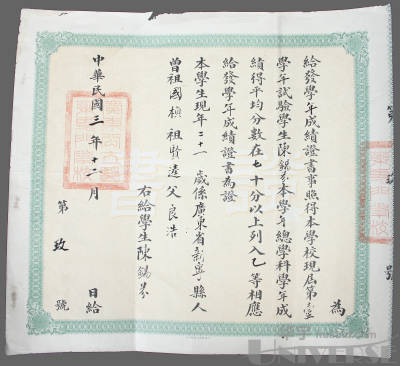 為
給發學年成績證書事照得本學校現屆第壹
學年試驗學生陳錫芬本學年總學科學年成
績得平均分數在七十分以上列入乙等相應
給發學年成績證書為證
本學生現年二十一歲係廣東省新寧縣人
曾祖國楨 祖賢逵 父良浩
右給學生陳錫芬
中華民國三年十二月 日給
第玫號